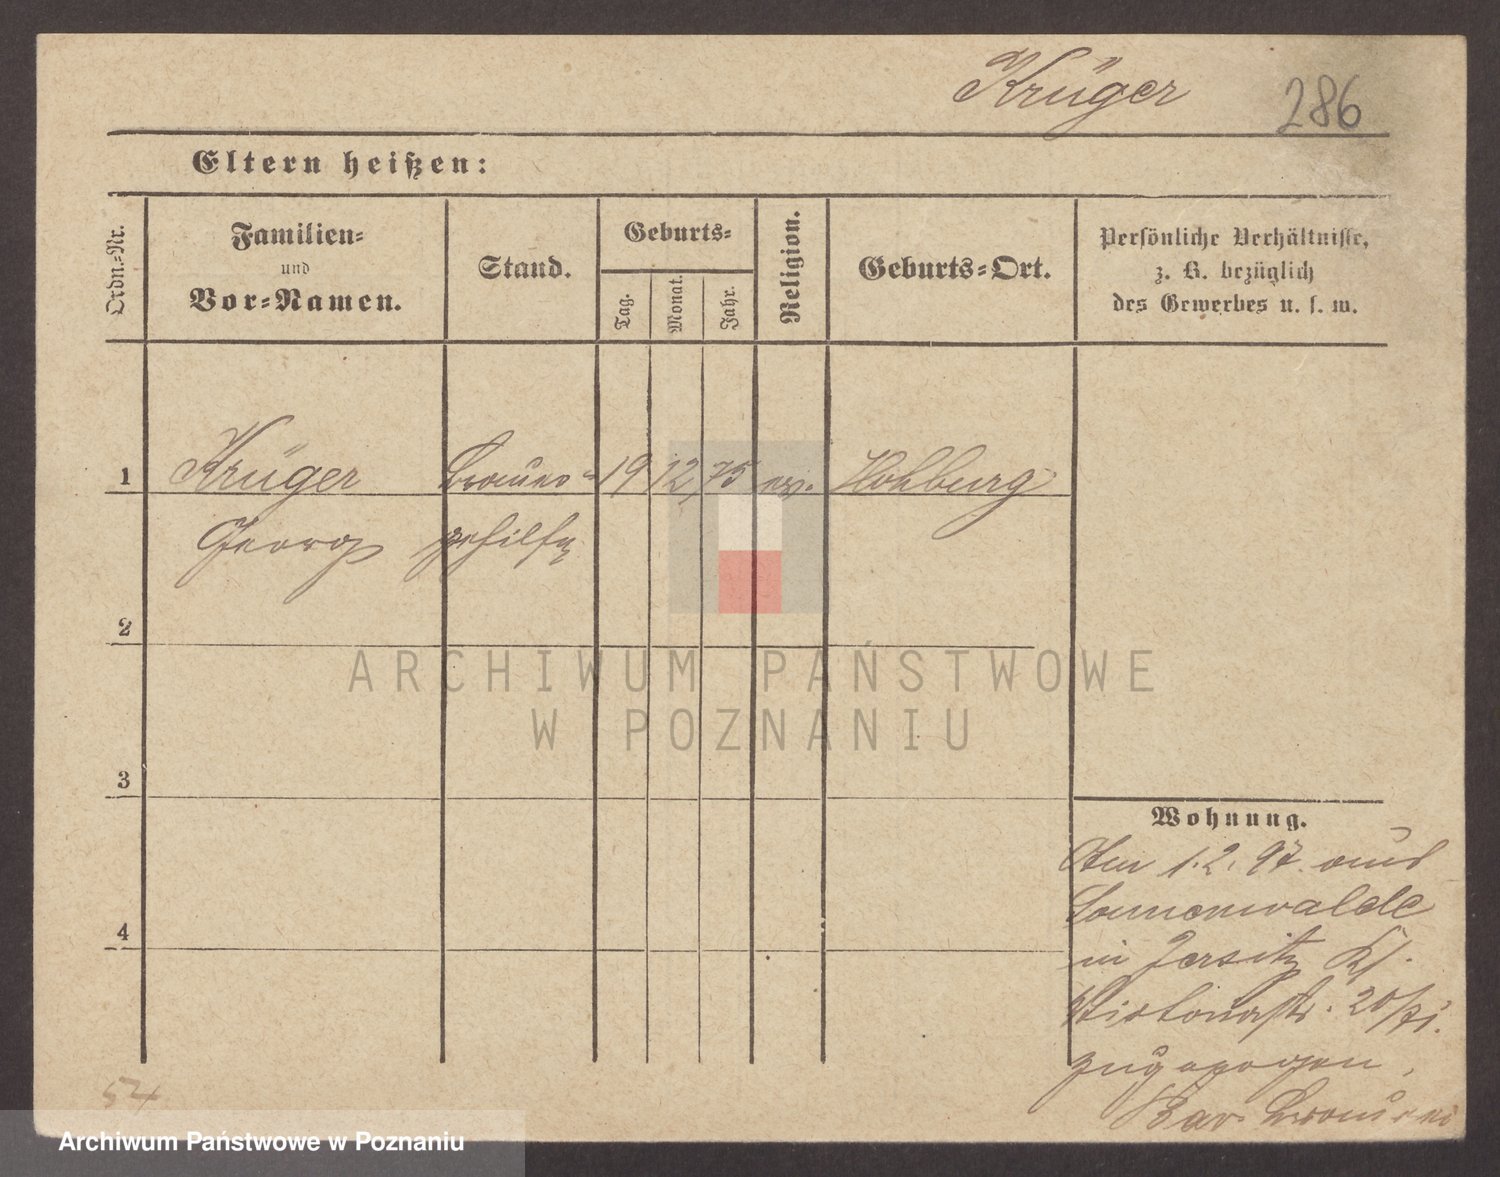 Krüger 286
Eltern heißen:
Ordn.-Nr.
Familien-
und
Vor-Namen.
Stand.
Geburts-
Tag. Monat. Jahr.
Religion.
Geburts-Ort.
Persönliche Verhältnisse,
z. B. bezüglich
des Gewerbes u. s. w.
1 Krüger Brauer- 19 12 75 ev. Hohburg
Georg gehilfe
2
3
4
Wohnung.
Am 1.2.97. aus
Sonnenwalde
in Jersitz
20
zugezogen.
54
ARCHIWUM PAŃSTWOWE
W POZNANIU
Archiwum Państwowe w Poznaniu